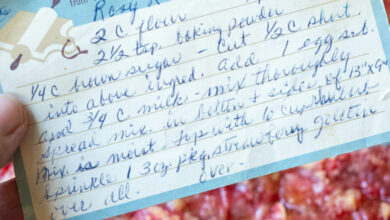 from
Rosy R
2 c. flour
2 1/2 tsp. baking powder
1/4 c brown sugar - cut 1/2 c short.
into above ingred. add 1 egg
and 3/4 c milk - mix thoroughly
Spread mix. in bottom & sides of 13"x9"
Mix is moist - top with 6 c. rhubarb
Sprinkle 1 3oz pkg. strawberry gelatin
over all. over -